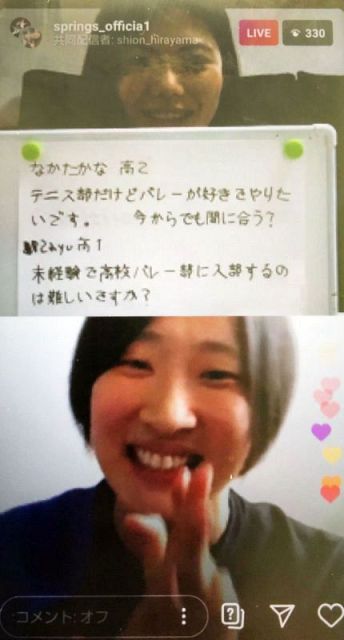 springs_officia1
共同配信者: shion_hirayama
LIVE
330
なかたかな 高2
テニス部だけどバレーが好きでやりた
いです。 今からでも間に合う?
高1
未経験で高校バレー部に入部するの
は難しいですか?
コメント: オフ